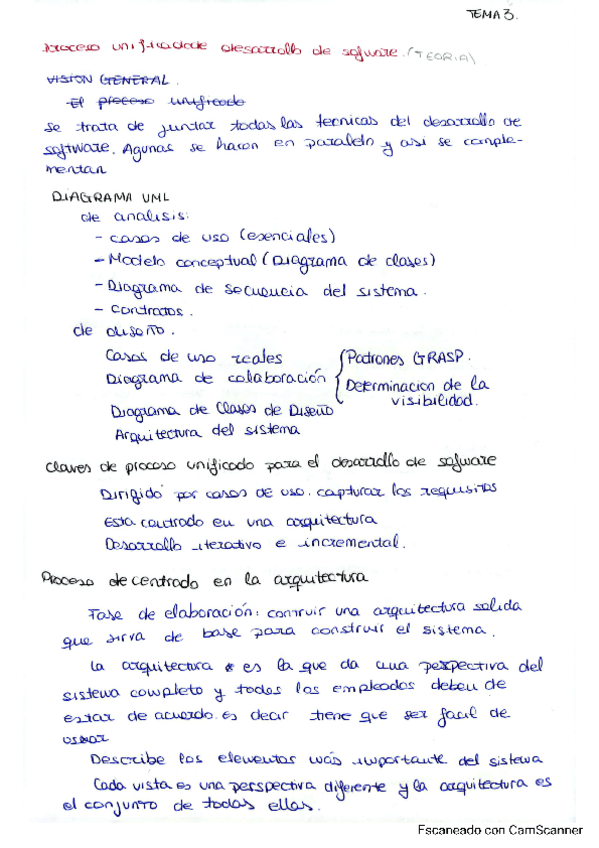 TEMA 3.
Proceso unificadode desarrollo de sofware. (TEORIA)
VISION GENERAL.
El proceso unificado
se trata de juntar todas las tecnicas del desarrollo de
software. Agunas se hacen en paralelo y asi se comple-
mentan
DIAGRAMA UML
de analisis:
- casos de uso (esenciales)
- Modelo conceptual (Diagrama de clases)
- Diagrama de secuencia del sistema.
- contratos.
de diseño.
Casos de uso reales
Diagrama de colaboración
Patrones GRASP.
Determinacion de la
visibilidad.
Diagrama de Clases de Diseño
Arquitectura del sistema
Claves de proceso unificado para el desarrollo de sofware
Dirigido por casos de uso. capturar los requisitos
Esta centrado en una arquitectura
Desarrollo iterativo e incremental.
Proceso de centrado en la arquitectura
Fase de elaboración: contruir una arquitectura solida
que sirva de base para construir el sistema.
La arquitectura es la que da una perspectiva del
sistema completo y todos los empleados deben de
estar de acuerdo. es decir tiene que ser facil de
usar
Describe los elementos más importante del sistema
Cada vista es una perspectiva diferente y la arquitectura es
el conjunto de todas ellas.
Escaneado con CamScanner